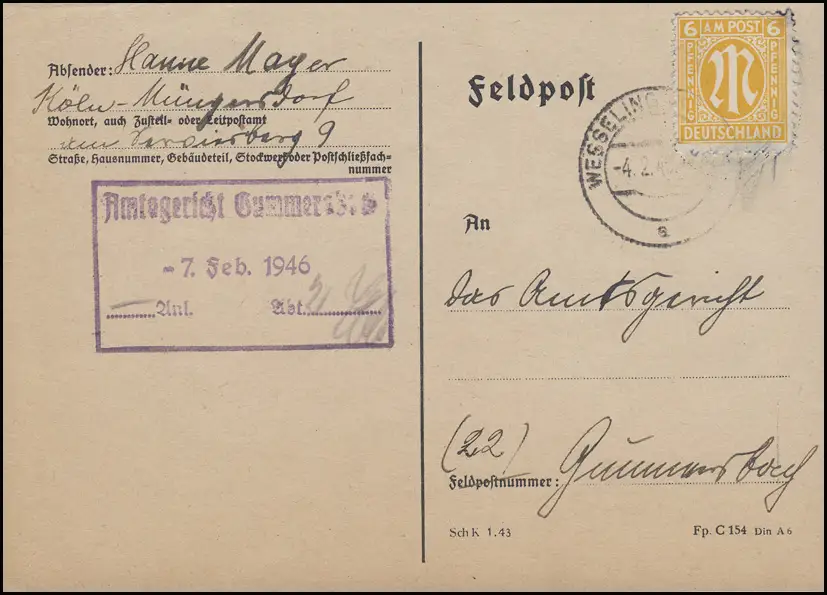 Absender: Hanne Mayer
Köln-Müngersdorf
Wohnort, auch Zustell- oder Leitpostamt
am 9
Straße, Hausnummer, Gebäudeteil, Stockwerk oder Postschließfach-
nummer
Amtsgericht Gummersbach
- 7. Feb. 1946
Anl. Abt.
Feldpost
6 AM POST 6
PFENNIG PFENNIG
M
DEUTSCHLAND
WESSELING
-4.2.4
a
An
das Amtsgericht
(22) Gummersbach
Feldpostnummer:
Sch K 1.43
Fp. C 154 Din A 6